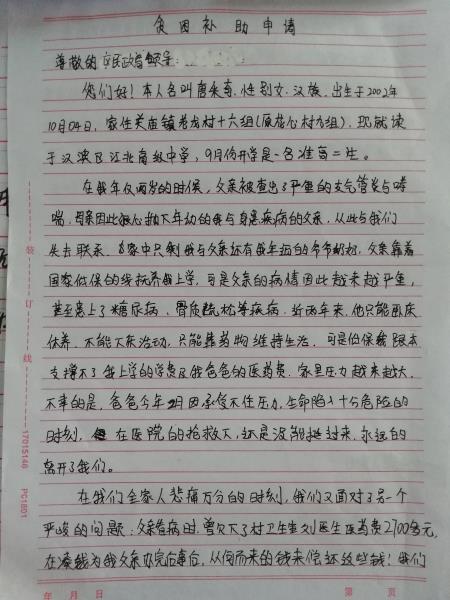 贫困补助申请
尊敬的市民政局领导:
你们好!本人名叫唐来南,性别女,汉族,出生于2002年
10月04日,家住关庙镇老龙村十六组(原花心村九组),现就读
于汉滨区江北高级中学,9月份开学是一名准高二生。
在我年仅两岁的时候,父亲被查出了严重的支气管炎与哮
喘,母亲因此狠心抛下年幼的我与身患疾病的父亲,从此与我们
失去联系,家中只剩我与父亲还有我年迈的爷爷奶奶,父亲靠着
国家低保的钱抚养我上学,可是父亲的病情因此越来越严重,
甚至患上了糖尿病、骨质疏松等疾病,近两年来,他只能卧床
休养,不能下床活动,只能靠药物维持生活,可是低保钱跟本
支撑不了我上学的学费及我爸爸的医药费,家里压力越来越大,
不幸的是,爸爸今年2月因承受不住压力,生命陷入十分危险的
时刻,在医院的抢救下,还是没能挺过来,永远的
离开了我们。
在我们全家人悲痛万分的时刻,我们又面对了另一个
严峻的问题:父亲看病时,曾欠下了村卫生室刘医生医药费2700多元,
在凑钱为我父亲办完后事后,从何而来的钱来偿还这些钱!我们
装订线
17015146 PC1801
年 月 日 第 页